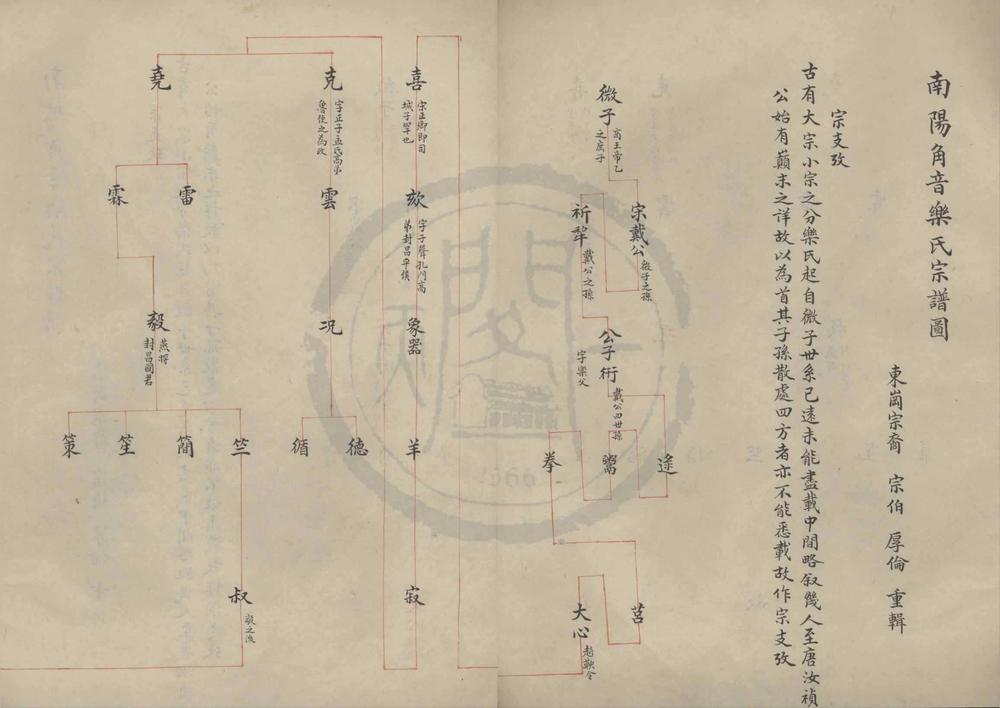 南陽角音樂氏宗譜圖
東崗宗裔 宗伯 厚倫 重輯
宗支攷
古有大宗小宗之分樂氏起自微子世系已遠未能盡載中間略叙幾人至唐汝禎
公始有巔末之詳故以為首其子孫散處四方者亦不能悉載故作宗支攷
微子
商王帝乙
之庶子
宋戴公
微子之孫
祈犂
戴公之孫
公子衎
字樂父
戴公四世孫
遂
鬻
拳
莒
大心
趙鞅令
喜
宋正卿即司
城子罕也
欬
字子聲孔門高
弟封昌平侯
象器
羊
寂
克
字正子孟氏高弟
魯使之為政
雲
况
德
循
堯
雷
霖
毅
燕將
封昌國君
竺
簡
笙
策
叔
毅之孫